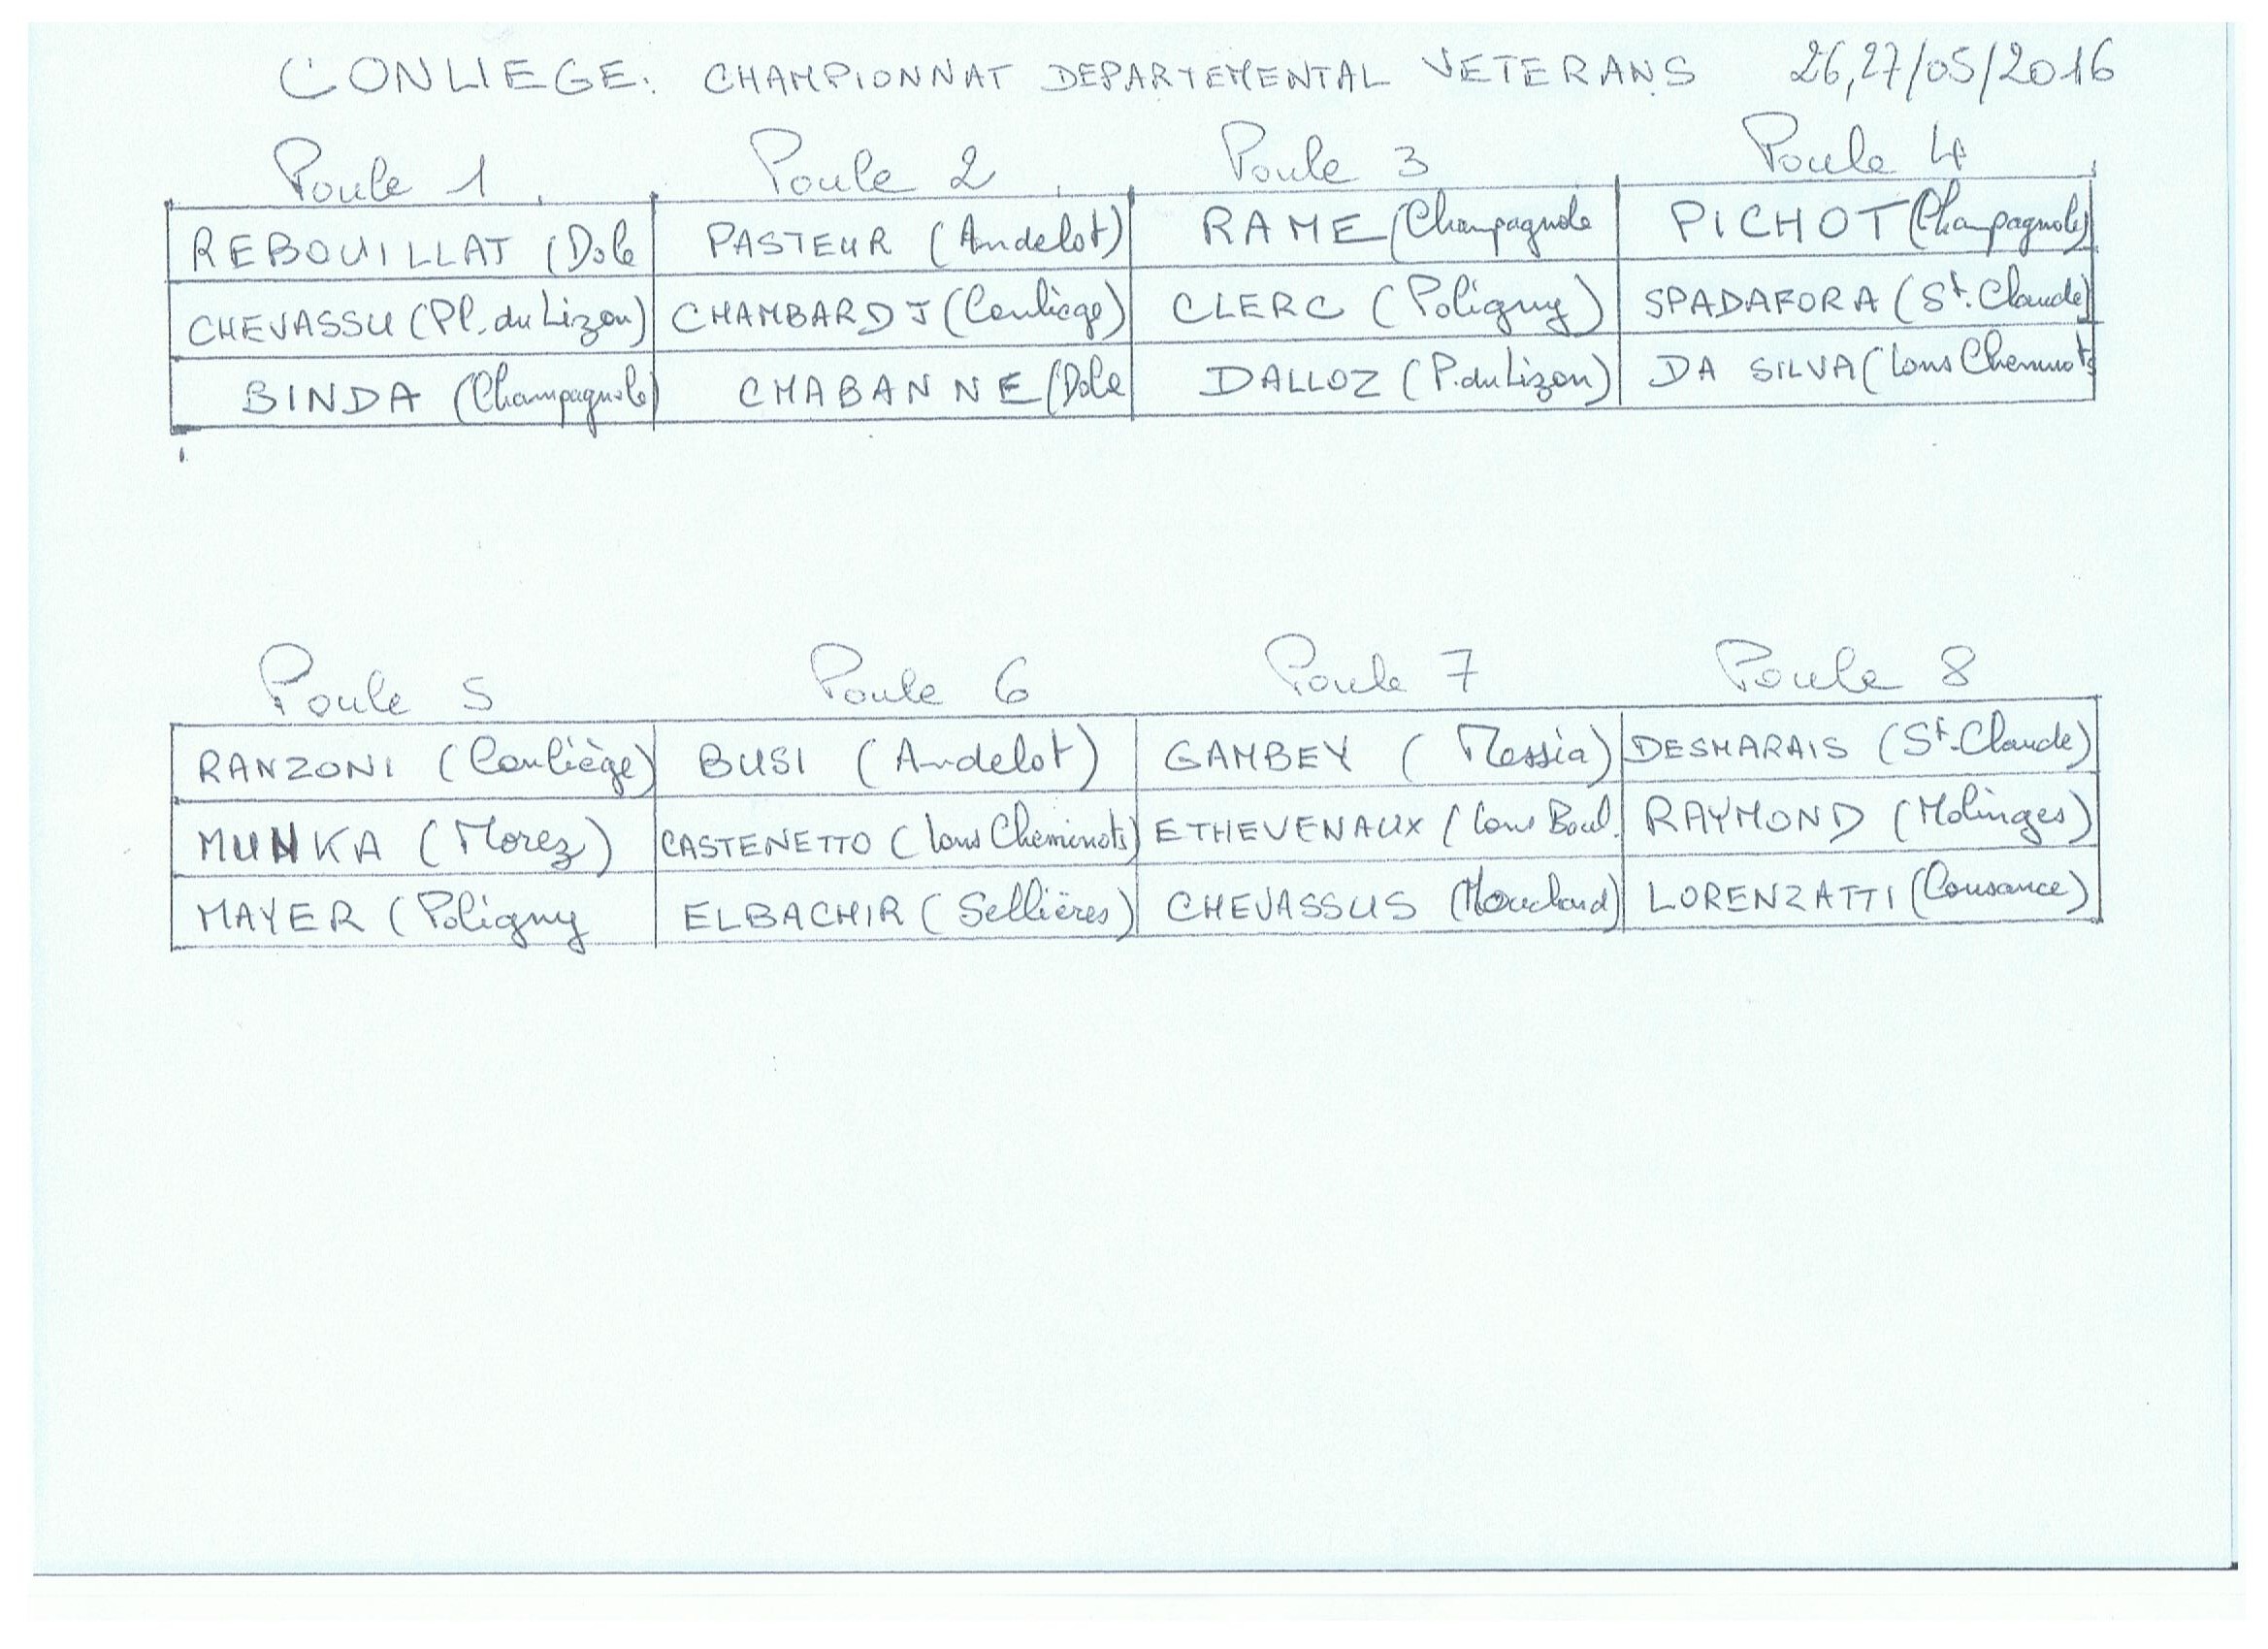 CONLIEGE: CHAMPIONNAT DEPARTEMENTAL VETERANS 26,27/05/2016
Poule 1 Poule 2 Poule 3 Poule 4
REBOUILLAT (Dole PASTEUR (Andelot) RAME (Champagnole PICHOT (Champagnole)
CHEVASSU (Pl. du Lizon) CHAMBARD J (Conliège) CLERC (Poligny) SPADAFORA (St. Claude)
BINDA (Champagnole) CHABANNE (Dole DALLOZ (P. du Lizon) DA SILVA (Lons Cheminots
Poule 5 Poule 6 Poule 7 Poule 8
RANZONI (Conliège) BUSI (Andelot) GAMBEY (Messia) DESMARAIS (St. Claude)
MUNKA (Morez) CASTENETTO (Lons Cheminots) ETHEVENAUX (Lons Boul. RAYMOND (Molinges)
MAYER (Poligny ELBACHIR (Sellières) CHEVASSUS (Mouchard) LORENZATTI (Cousance)